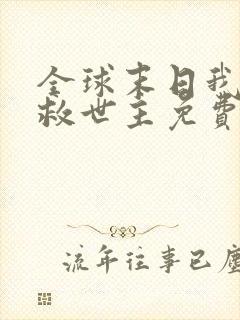 全球末日我
救世主免費
流年往事已塵